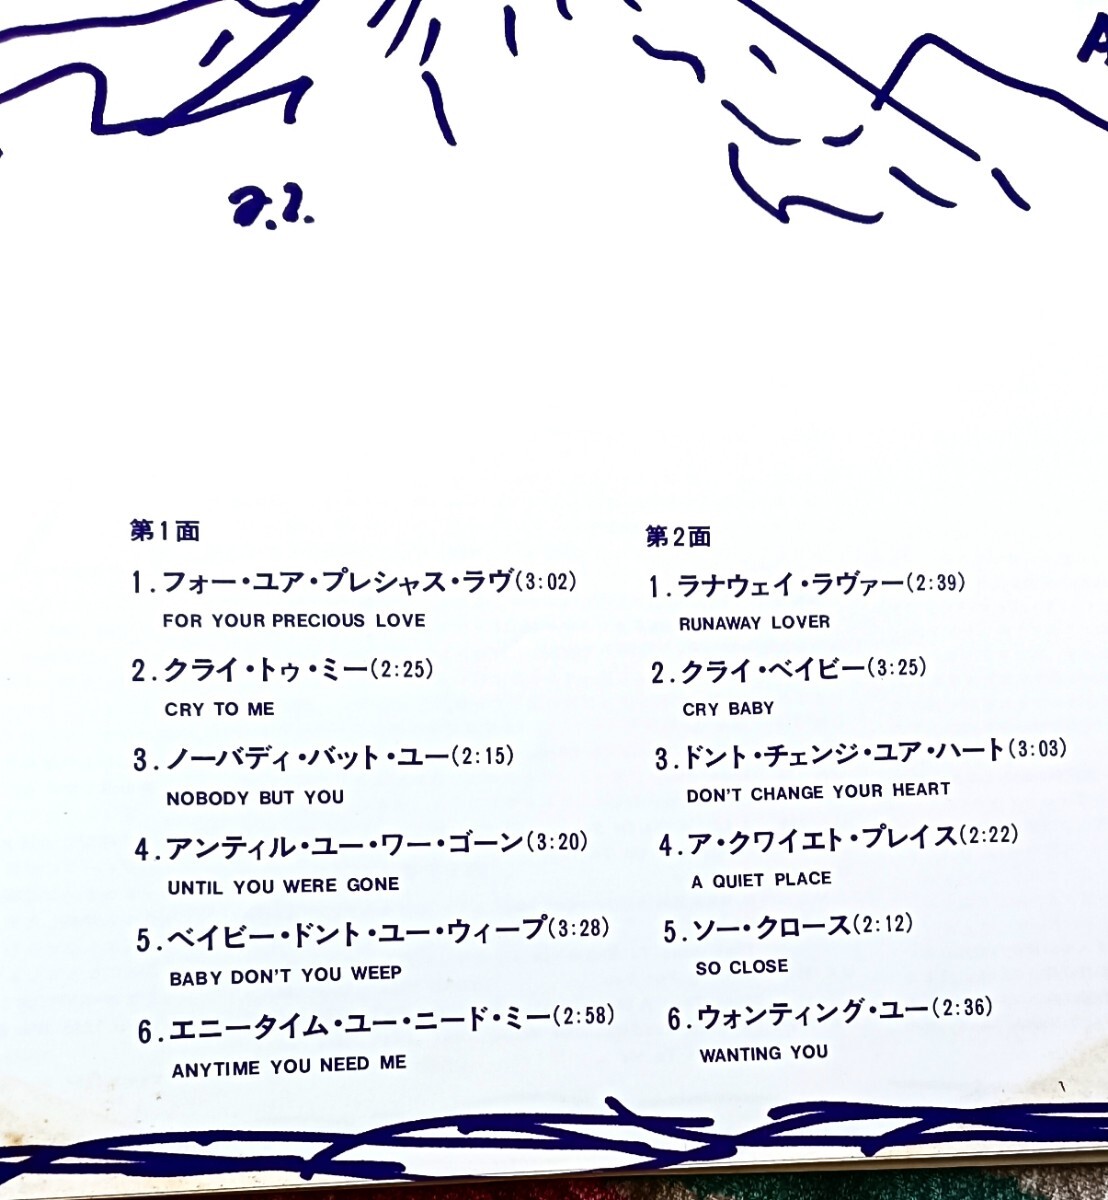 第1面
1.フォー・ユア・プレシャス・ラヴ(3:02)
FOR YOUR PRECIOUS LOVE
2.クライ・トゥ・ミー(2:25)
CRY TO ME
3.ノーバディ・バット・ユー(2:15)
NOBODY BUT YOU
4.アンティル・ユー・ワー・ゴーン(3:20)
UNTIL YOU WERE GONE
5.ベイビー・ドント・ユー・ウィープ(3:28)
BABY DON'T YOU WEEP
6.エニータイム・ユー・ニード・ミー(2:58)
ANYTIME YOU NEED ME
第2面
1.ラナウェイ・ラヴァー(2:39)
RUNAWAY LOVER
2.クライ・ベイビー(3:25)
CRY BABY
3.ドント・チェンジ・ユア・ハート(3:03)
DON'T CHANGE YOUR HEART
4.ア・クワイエト・プレイス(2:22)
A QUIET PLACE
5.ソー・クロース(2:12)
SO CLOSE
6.ウォンティング・ユー(2:36)
WANTING YOU